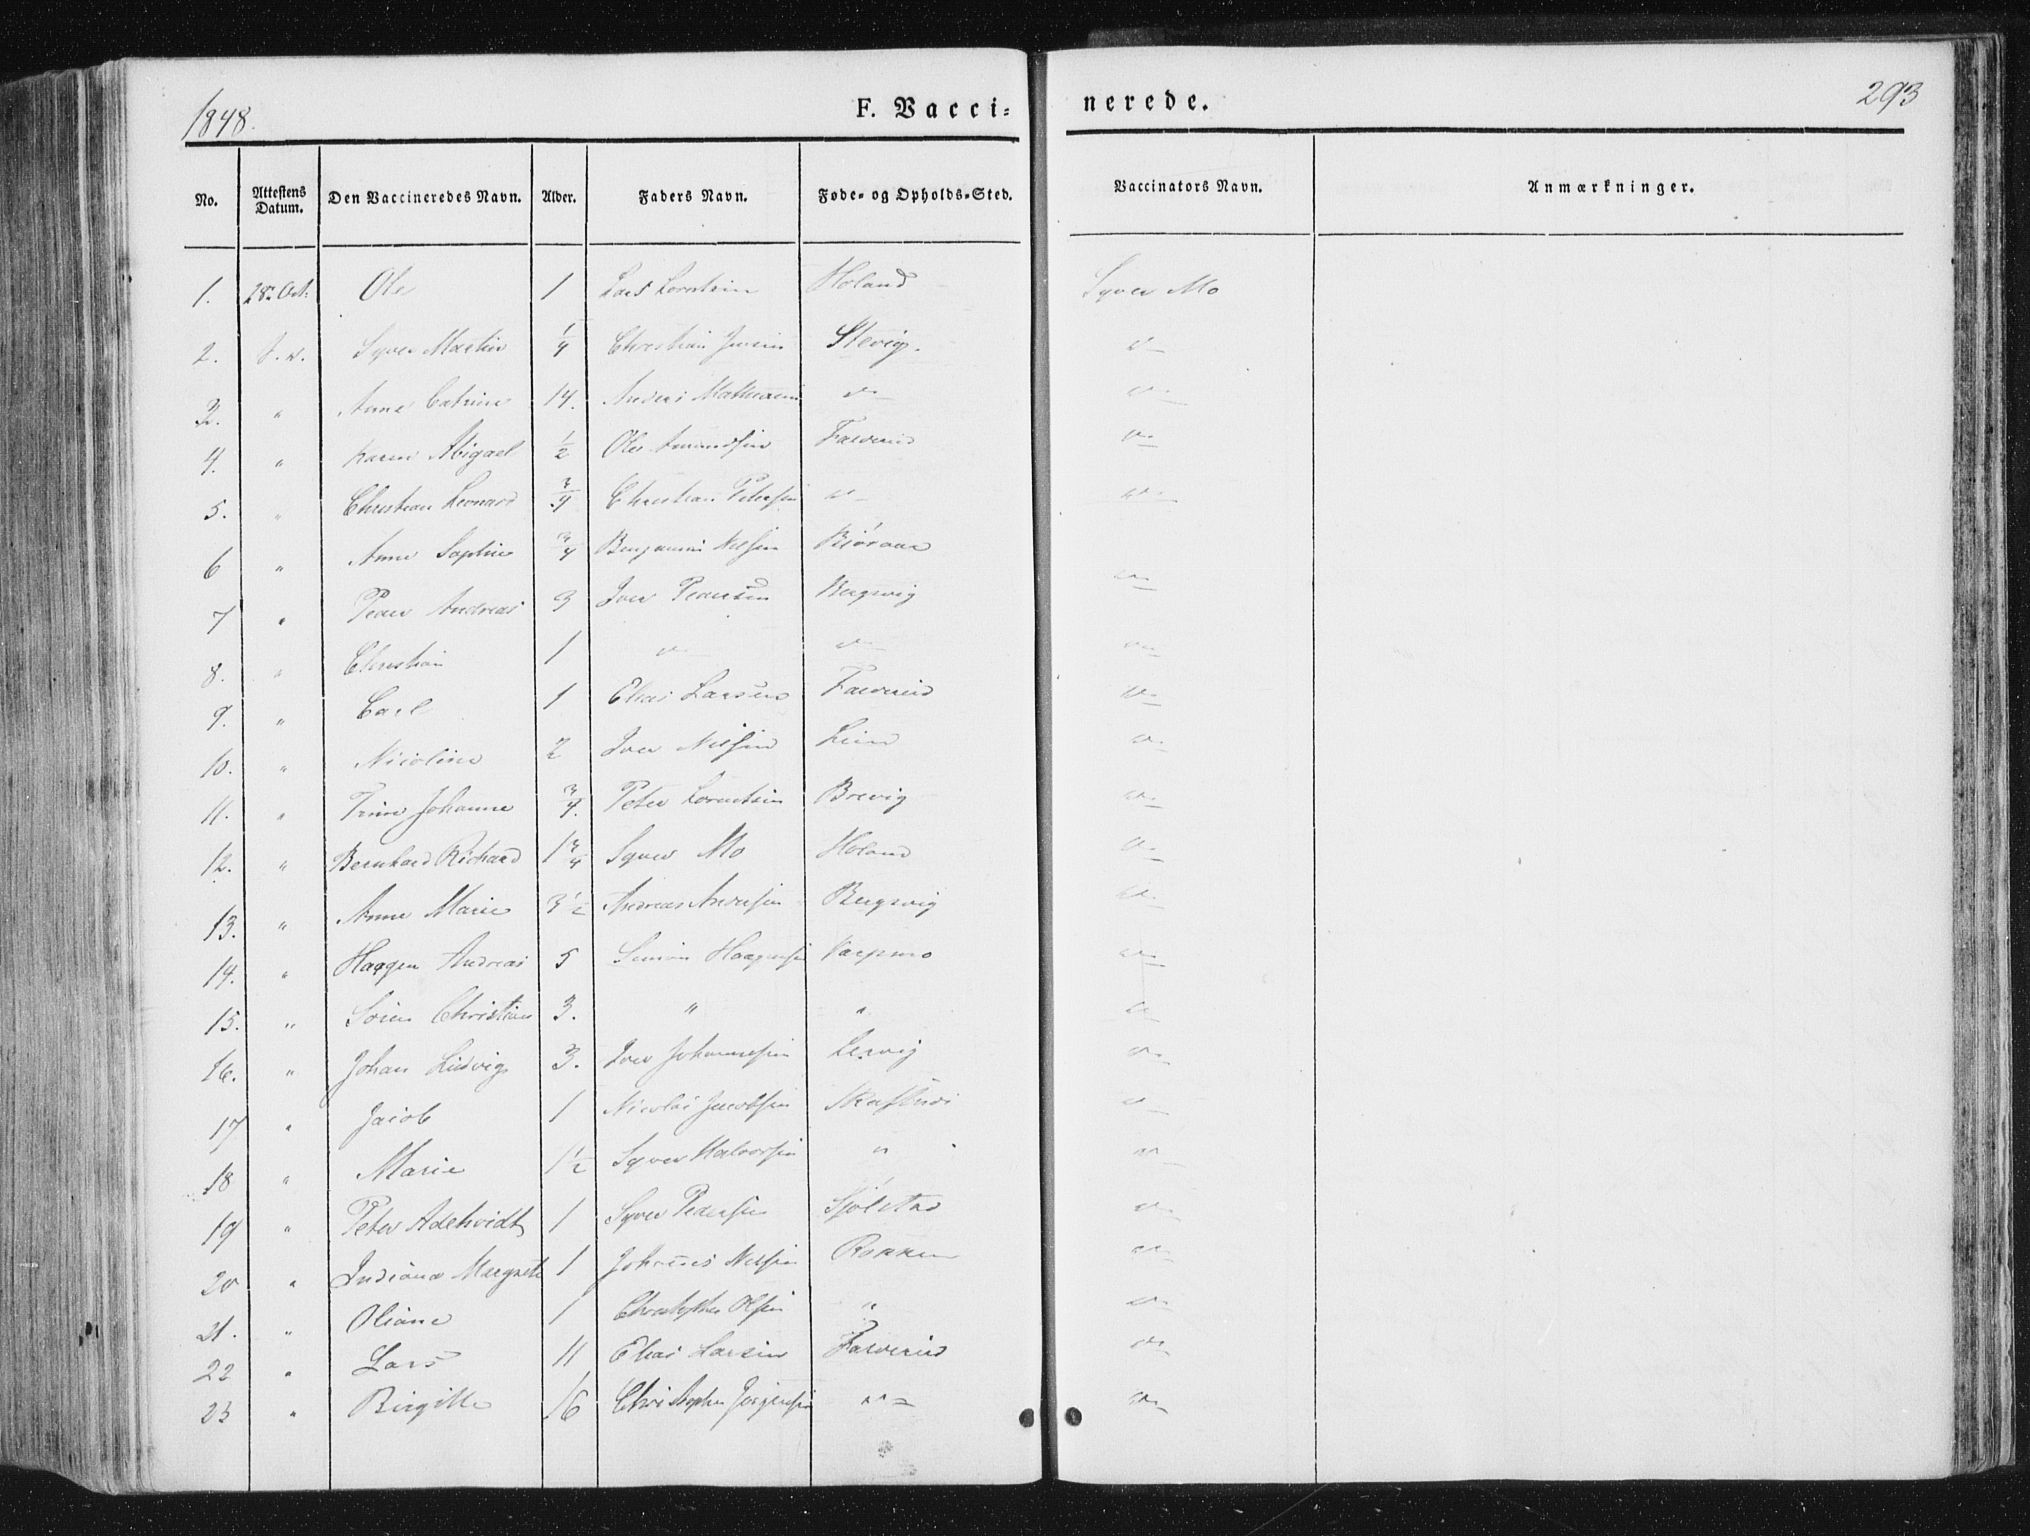 1848. F. Vacci= nerede. 293
No. Attestens Datum. Den Vaccineredes Navn. Alder. Faders Navn. Føde= og Opholds=Sted. Vaccinators Navn. Anmærkninger.
1. 28. Oct. Ole 1 Lars Holand Syver Mo
2. Syver Martin 1/4 Christian Stevig. do
3. " Anne Catrine 14. Anders do do
4. " Karen Abigael 1/2 Ole Amundsen do
5. " Christian Leonard 3/4 Christian Petersen do do
6 " Anne Sophie 3/4 Benjamin Nilsen
7 " Peder Andreas 3 Iver Pedersen Bergsvig do
8. " Christian 1 do do do
9. " Carl 1 Elias Larsen do
10. " Nicoline 2 Iver Nilsen Lein do
11. " Trine Johanne 3/4. Peter Lorentsen Brevig do
12. " Bernhard Richard 1 3/4 Syver Mo Holand do
13. " Anne Marie 3 1/2 Andreas Andersen Bergsvig do
14. " Haagen Andreas 5 Simon Haagensen do
15. " Sören Christian 3. " " do
16. " Johan Ludvig 3. Iver Johannesen Lervig do
17 " Jacob 1 Nicolai Jacobsen do
18 " Marie 1 1/2 Syver Halvorsen " "
19 " Peter Adehvidt 1 Syver Pedersen Sjölstad do
20 " Indiana Margrete 1 Johannes Nilsen do
21. " Oliane 1 Christopher Olsen " do
22 " Lars 11 Elias Larsen do
23 " Birgitte 16 Christopher Jörgensen do do